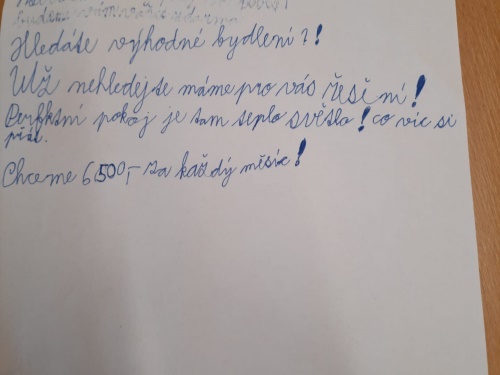 Hledáte výhodné bydlení?!
Už nehledejte máme pro vás řešení!
Perfktní pokoj je tam teplo světlo! co víc si
přát.
Chceme 6500,- za každý měsíc!